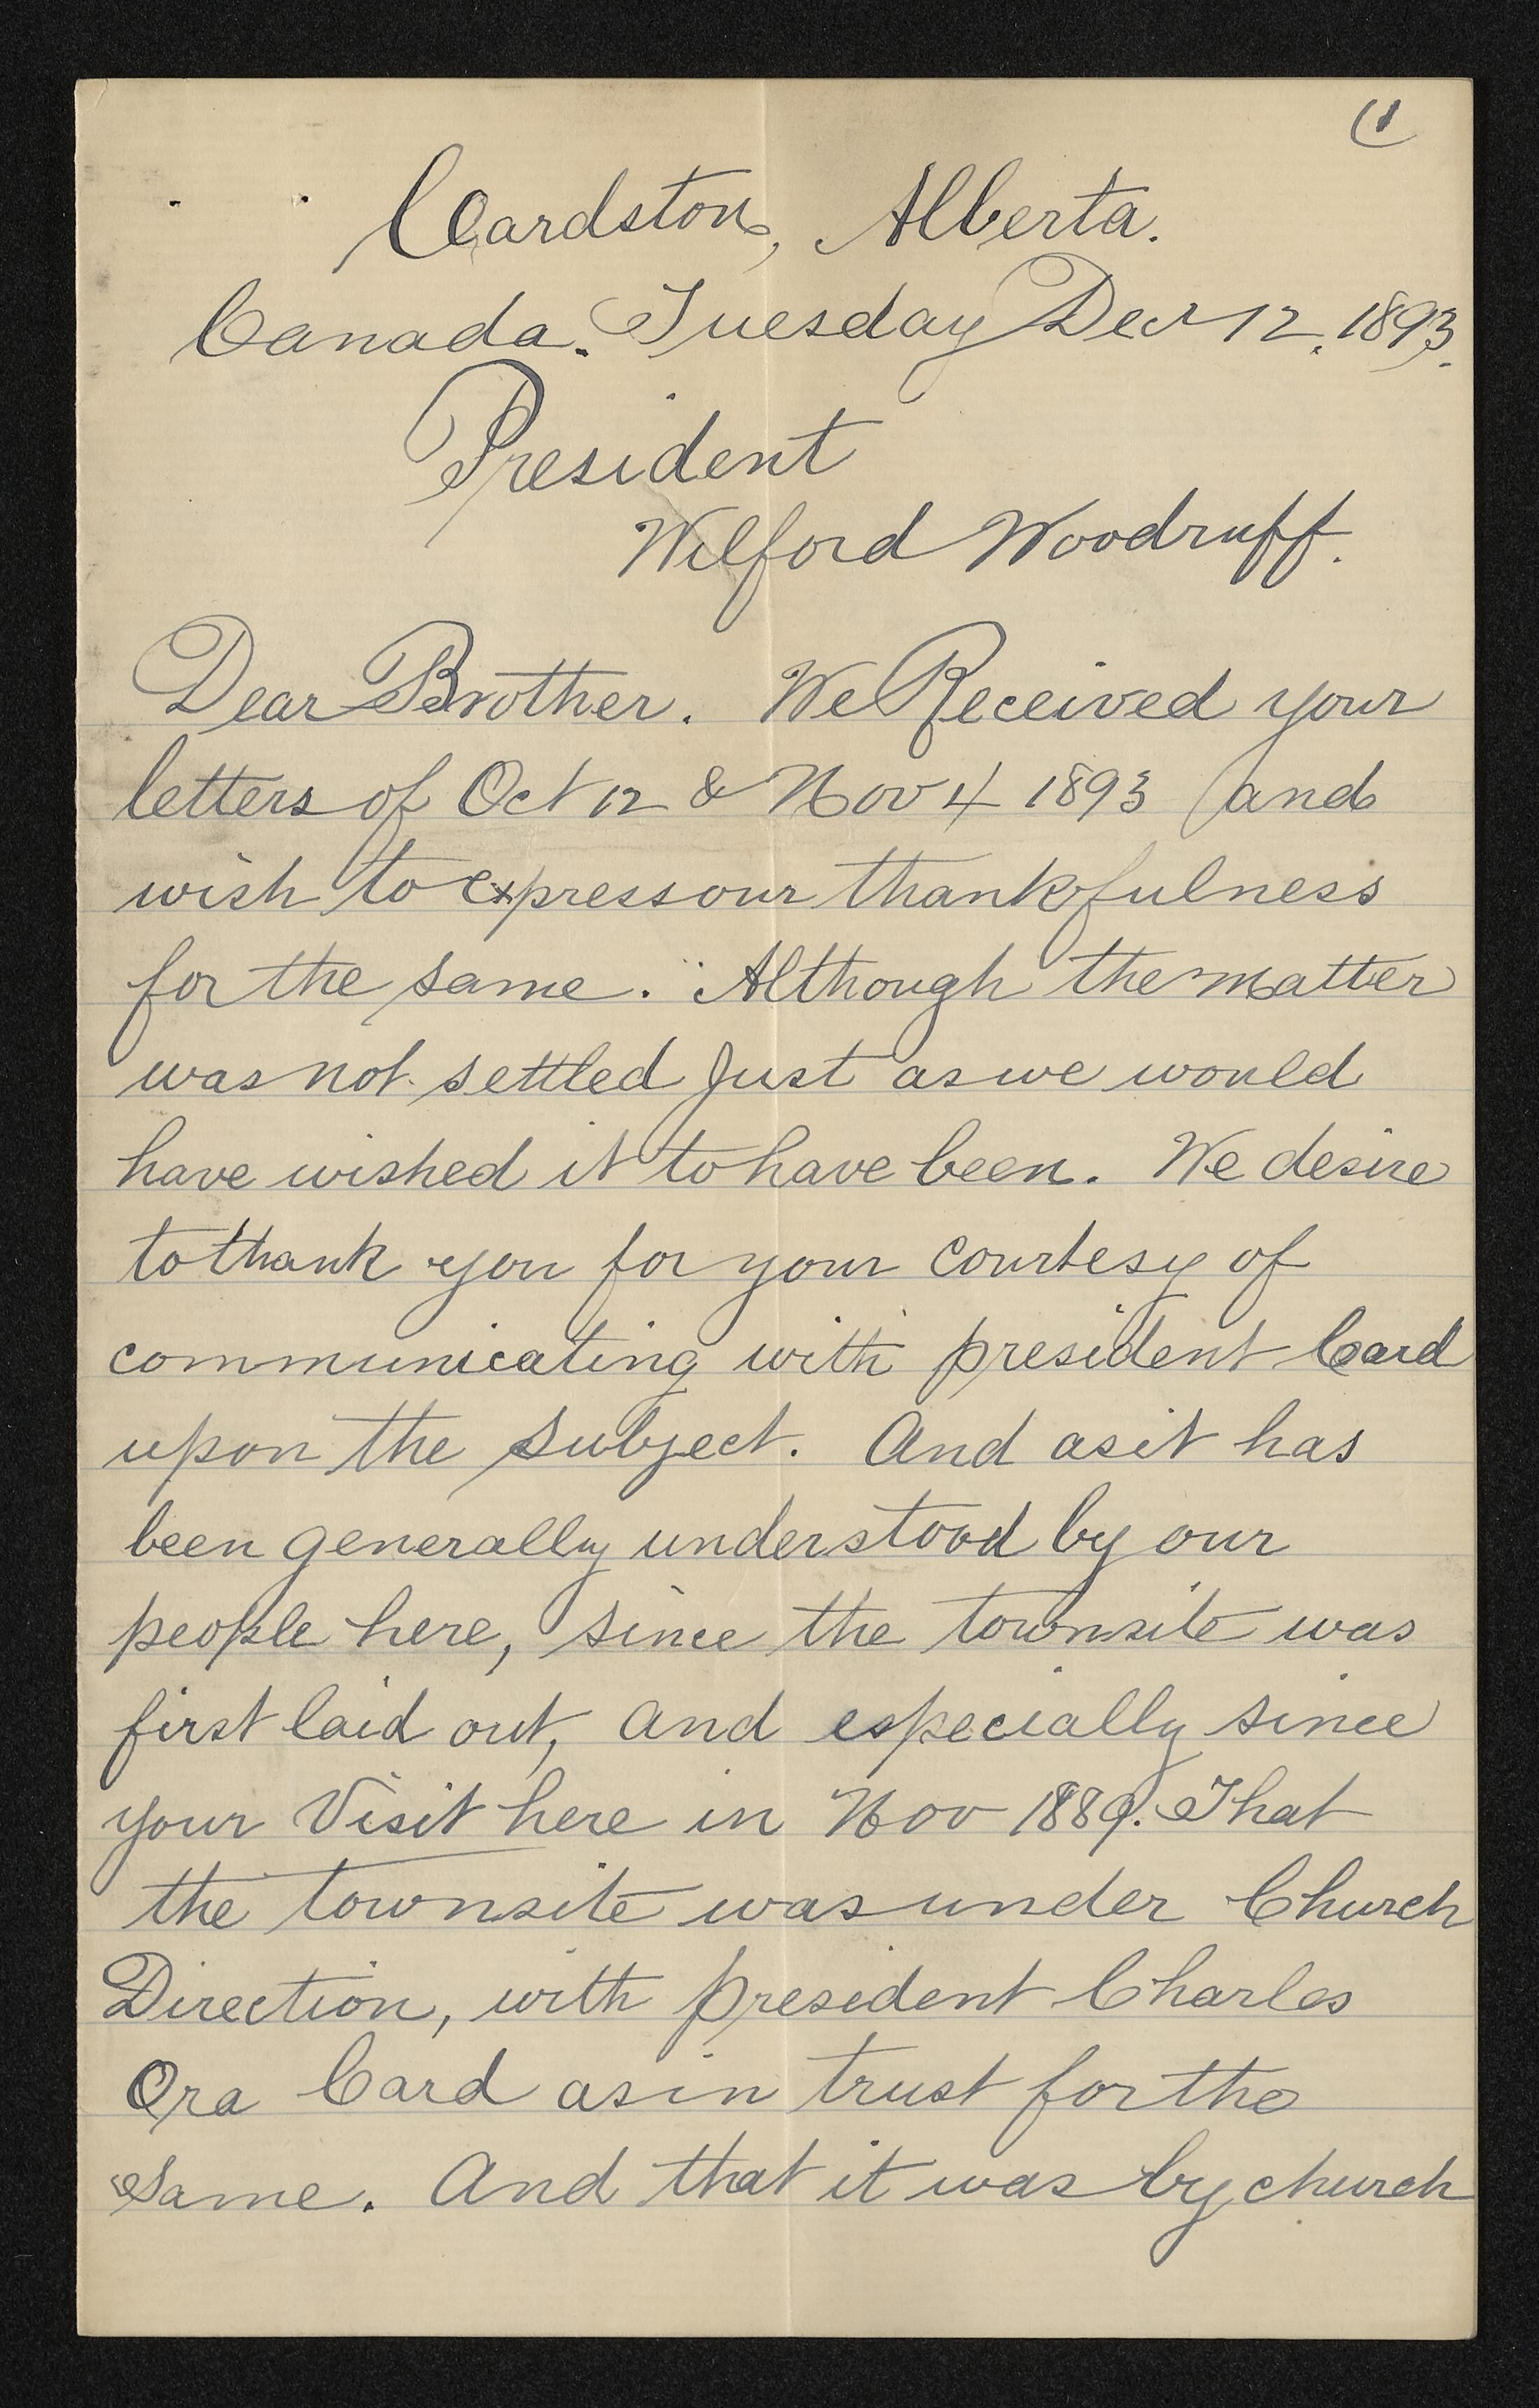 (1
Cardston, Alberta.
Canada. Tuesday Dec 12. 1893.
President
Wilford Woodruff.
Dear Brother. We Received your
letters of Oct 12 & Nov 4 1893 and
wish to express our thankfulness
for the same. Although the matter
was not settled Just as we would
have wished it to have been. We desire
to thank you for your courtesy of
communicating with president Card
upon the subject. And as it has
been generally understood by our
people here, since the townsite was
first laid out, and especially since
your Visit here in Nov 1889. That
the townsite was under Church
Direction, with president Charles
Ora Card as in trust for the
same. And that it was by church